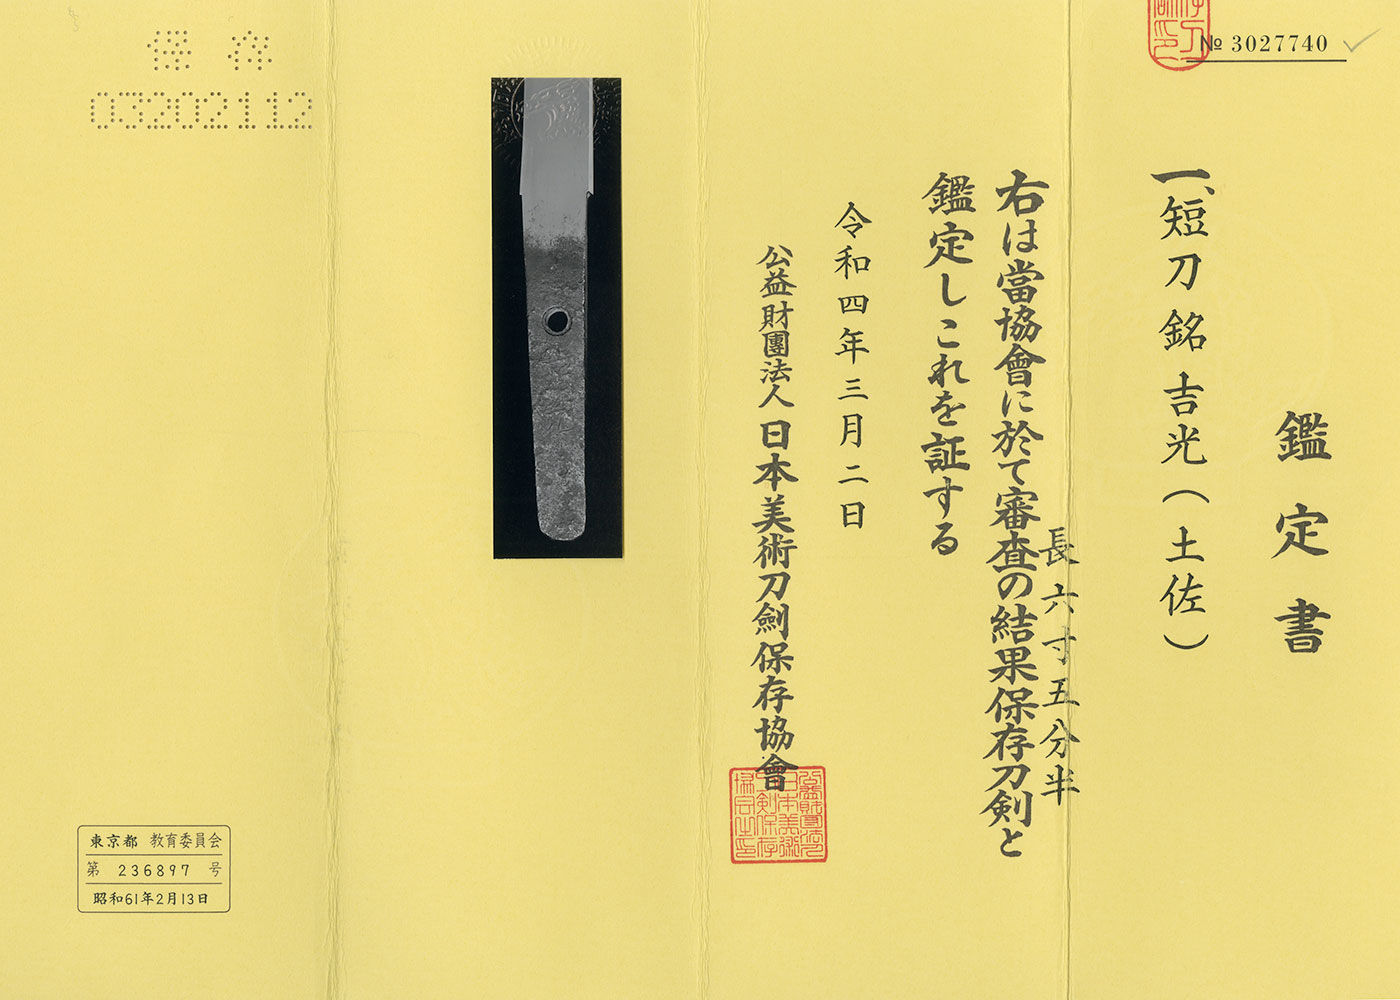 № 3027740
鑑定書
一、短刀 銘 吉光(土佐)
長 六寸五分半
右は當協會に於て審査の結果保存刀剣と
鑑定しこれを証する
令和四年三月二日
公益財團法人 日本美術刀劍保存協會
保存
03202112
東京都 教育委員会
第 236897 号
昭和61年2月13日